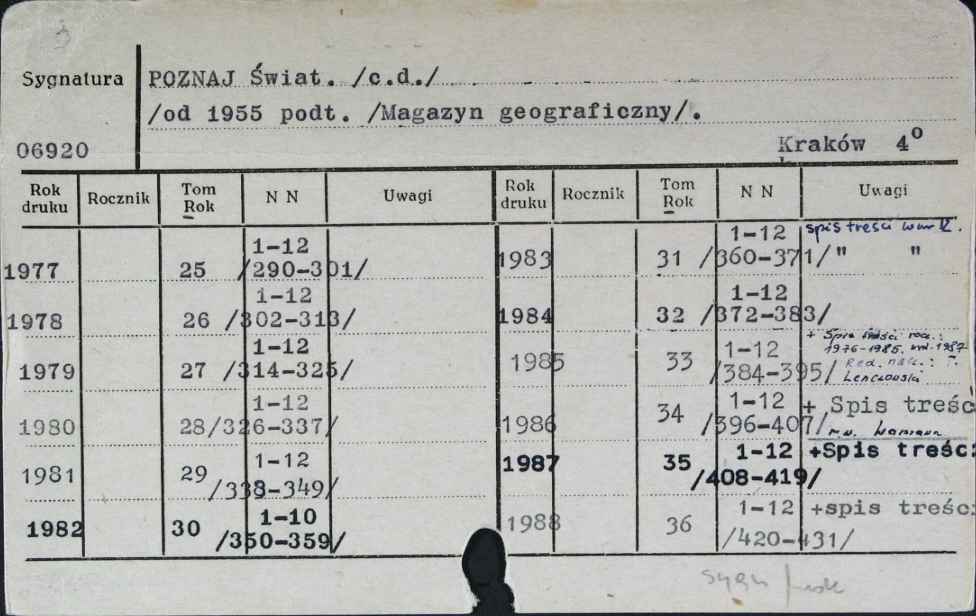 Sygnatura POZNAJ Świat. /c.d./
/od 1955 podt. /Magazyn geograficzny/.
06920 Kraków 4°
Rok druku Rocznik Tom Rok N N Uwagi Rok druku Rocznik Tom Rok N N Uwagi
1977 25 1-12 /290-301/
1978 26 1-12 /302-313/
1979 27 1-12 /314-325/
1980 28 1-12 /326-337/
1981 29 1-12 /338-349/
1982 30 1-10 /350-359/
1983 31 1-12 /360-371/ spis treści " "
1984 32 1-12 /372-383/
1985 33 1-12 /384-395/ + Spis treści 1976-1985. 1987 Red.
1986 34 1-12 /396-407/ + Spis treśc
1987 35 1-12 /408-419/ +Spis treśc
1988 36 1-12 /420-431/ +spis treśc